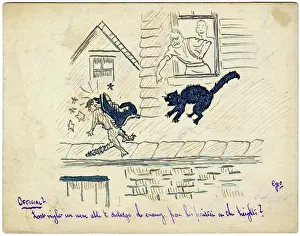 OFFICIAL?
Last night we were able to dislodge the enemy from his position on the heights?